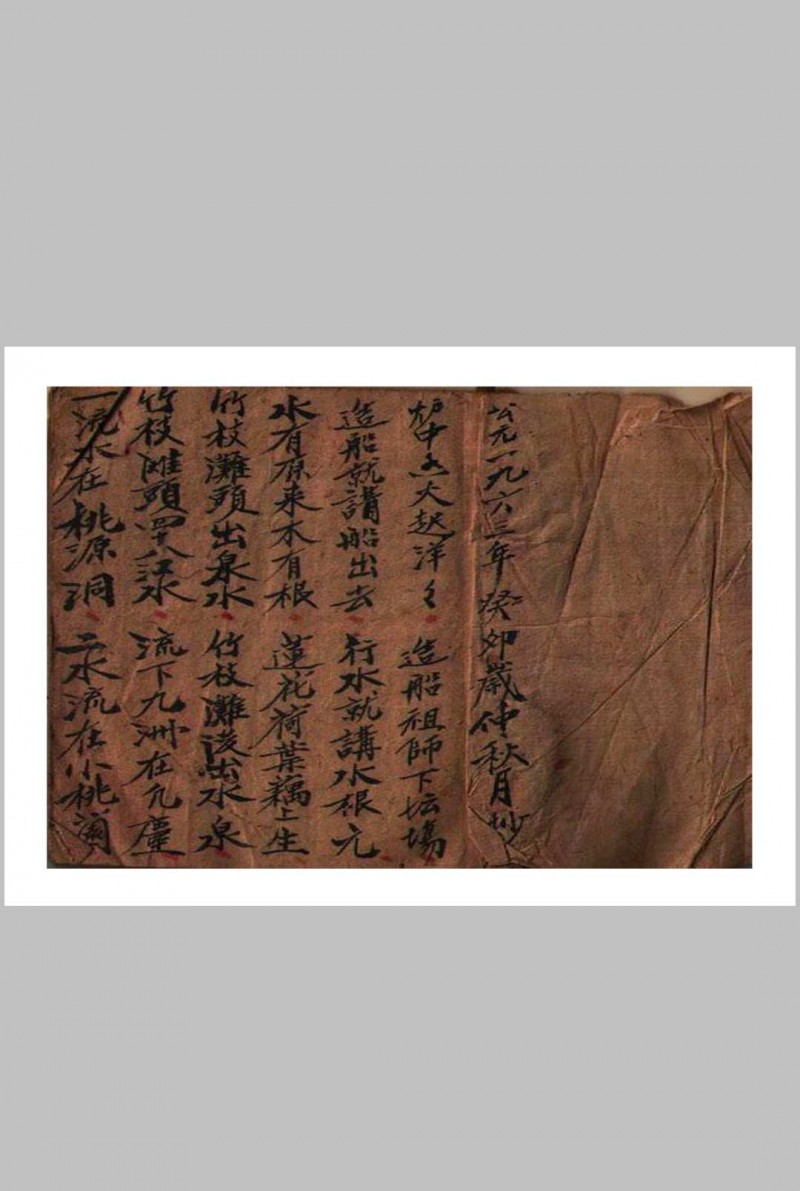 公元一九六三年癸卯歲仲秋月抄
炉中火起洋々 造船祖師下坛場
造船就講船出去 行水就講水根元
水有原来木有根 蓮花荷葉藕上生
竹枝灘頭出泉水 竹枝灘後出水泉
竹枝滩頭江水 流下九洲在九
一流水在桃源洞 二水流在小桃